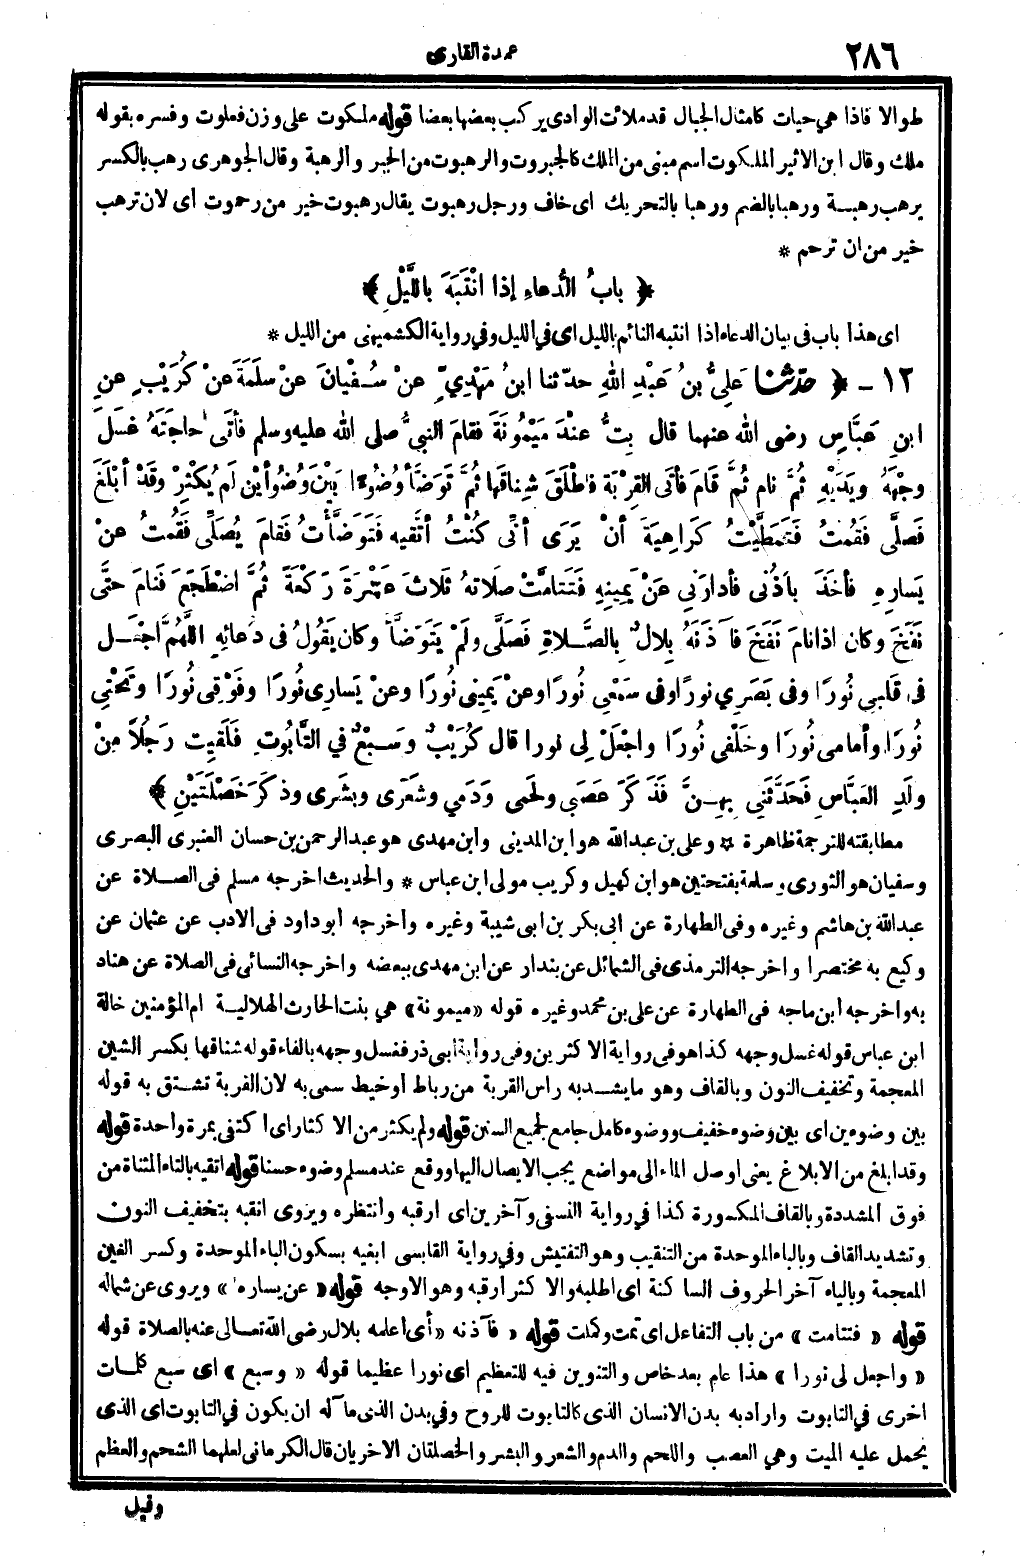 عمدة القارى
٢٨٦
طوالا فاذا هي حيات كامثال الجبال قد ملات الوادى يركب بعضها بعضا قوله ملكوت على وزن فعلوت وفسره بقوله
ملك وقال ابن الاثير الملكوت اسم مبنى من الملك كالجبروت والرهبوت من الجبر والرهبة وقال الجوهرى رهب بالكسر
يرهب رهبة ورهبا بالضم ورهبا بالتحريك اى خاف ورجل رهبوت يقال رهبوت خير من رحموت اى لان ترهب
خير من ان ترحم *
﴿ بابُ الدُّعاءِ إذا انْتَبَهَ بِاللَّيْلِ ﴾
اى هذا باب فى بيان الدعاء اذا انتبه النائم بالليل اى في الليل وفي رواية الكشميهنى من الليل *
١٢ - ﴿ حدّثنا عَلِيُّ بنُ عَبْدِ اللهِ حدّثنا ابنُ مَهْدِيٍّ عنْ سُفْيانَ عنْ سَلَمَةَ عنْ كُرَيْبٍ عنِ
ابنِ عَبَّاسٍ رضى الله عنهما قال بِتُّ عندَ مَيْمُونَةَ فقامَ النبيُّ صلى الله عليه وسلم فأتَى حاجَتَهُ غَسَلَ
وجْهَهُ ويَدَيْهِ ثُمَّ نام ثُمَّ قامَ فأتى القِرْبَةَ فأطْلَقَ شِناقَها ثُمَّ تَوَضَّأَ وُضُوءًا بَيْنَ وُضُوأيْنِ لَم يُكْثِرْ وقَدْ أبْلَغَ
فَصلَّى فَقُمْتُ فَتَمَطَّيْتُ كَراهِيَةَ أنْ يَرَى أنِّى كُنْتُ أتَّقيه فَتَوَضَّأْتُ فَقامَ يُصَلِّى فَقُمتُ عنْ
يَسارِهِ فأخَذَ بأُذُنى فأدارَنِي عنْ يَمِينِهِ فَتَتامَّتْ صلاتهُ ثَلاثَ عَشْرَةَ رَكْعَةً ثُمَّ اضْطَجَعَ فَنامَ حتَّى
نَفَخَ وكان اذا نامَ نَفَخَ فآذَنَهُ بِلالٌ بالصَّلاةِ فَصَلَّى ولَمْ يَتَوَضَّأْ وكان يَقُولُ فى دُعائِهِ اللَّهُمَّ اجْعَلْ
فى قَلْبِي نُورًا وفى بَصَرِي نورًا وفى سَمْعِي نُورًا وعنْ يَمِينى نُورًا وعنْ يَسارِى نُورًا وفَوْقِى نُورًا وتَحْتِي
نُورًا وأمامى نُورًا وخَلْفى نُورًا واجْعَلْ لِى نورا قال كُرَيْبٌ وسَبْعٌ في التَّابُوتِ فَلَقِيتُ رَجُلاً مِنْ
ولَدِ العَبَّاسِ فَحَدَّثَنِي بِهِنَّ فَذَكَرَ عَصَبِى ولَحْمى ودَمِي وشَعَرِى وبشَرِى وذكَرَ خَصْلَتَيْنِ ﴾
مطابقته للترجمة ظاهرة * وعلى بن عبدالله هو ابن المدينى وابن مهدى هو عبد الرحمن بن حسان العنبرى البصرى
وسفيان هو الثورى وسلمة بفتحتين هو ابن كهيل وكريب مولى ابن عباس * والحديث اخرجه مسلم فى الصلاة عن
عبدالله بن هاشم وغيره وفى الطهارة عن ابى بكر بن ابى شيبة وغيره واخرجه ابو داود فى الادب عن عثمان عن
وكيع به مختصرا واخرجه الترمذى فى الشمائل عن بندار عن ابن مهدى ببعضه واخرجه النسائى فى الصلاة عن هناد
به واخرجه ابن ماجه فى الطهارة عن على بن محمد وغيره قوله «ميمونة» هي بنت الحارث الهلالية ام المؤمنين خالة
ابن عباس قوله غسل وجهه كذا هو فى رواية الاكثرين وفى رواية ابى ذر فغسل وجهه بالفاء قوله شناقها بكسر الشين
المعجمة وتخفيف النون وبالقاف وهو ما يشد به راس القربة من رباط او خيط سمى به لان القربة تشنق به قوله
بين وضوءين اى بين وضوء خفيف ووضوء كامل جامع لجميع السنن قوله ولم يكثر من الاكثار اى اكتفى بمرة واحدة قوله
وقد ابلغ من الابلاغ يعنى اوصل الماء الى مواضع يجب الايصال اليها ووقع عند مسلم وضوء حسنا قوله اتقيه بالتاء المثناة من
فوق المشددة وبالقاف المكسورة كذا في رواية النسفى وآخرين اى ارقبه وانتظره ويروى انقبه بتخفيف النون
وتشديد القاف وبالباء الموحدة من التنقيب وهو التفتيش وفي رواية القابسى ابغيه بسكون الباء الموحدة وكسر الغين
المعجمة وبالياء آخر الحروف الساكنة اى اطلبه والاكثر ارقبه وهو الاوجه قوله «عن يساره» ويروى عن شماله
قوله «فتتامت» من باب التفاعل اى تمت وكملت قوله «فآذنه» أى اعلمه بلال رضى الله تعالى عنه بالصلاة قوله
«واجعل لى نورا» هذا عام بعد خاص والتنوين فيه للتعظيم اى نورا عظيما قوله «وسبع» اى سبع كلمات
اخرى في التابوت واراد به بدن الانسان الذى كالتابوت للروح وفي بدن الذى مآله ان يكون في التابوت اى الذى
يحمل عليه الميت وهي العصب واللحم والدم والشعر والبشر والخصلتان الاخريان قال الكرمانى لعلهما الشحم والعظم
وقيل